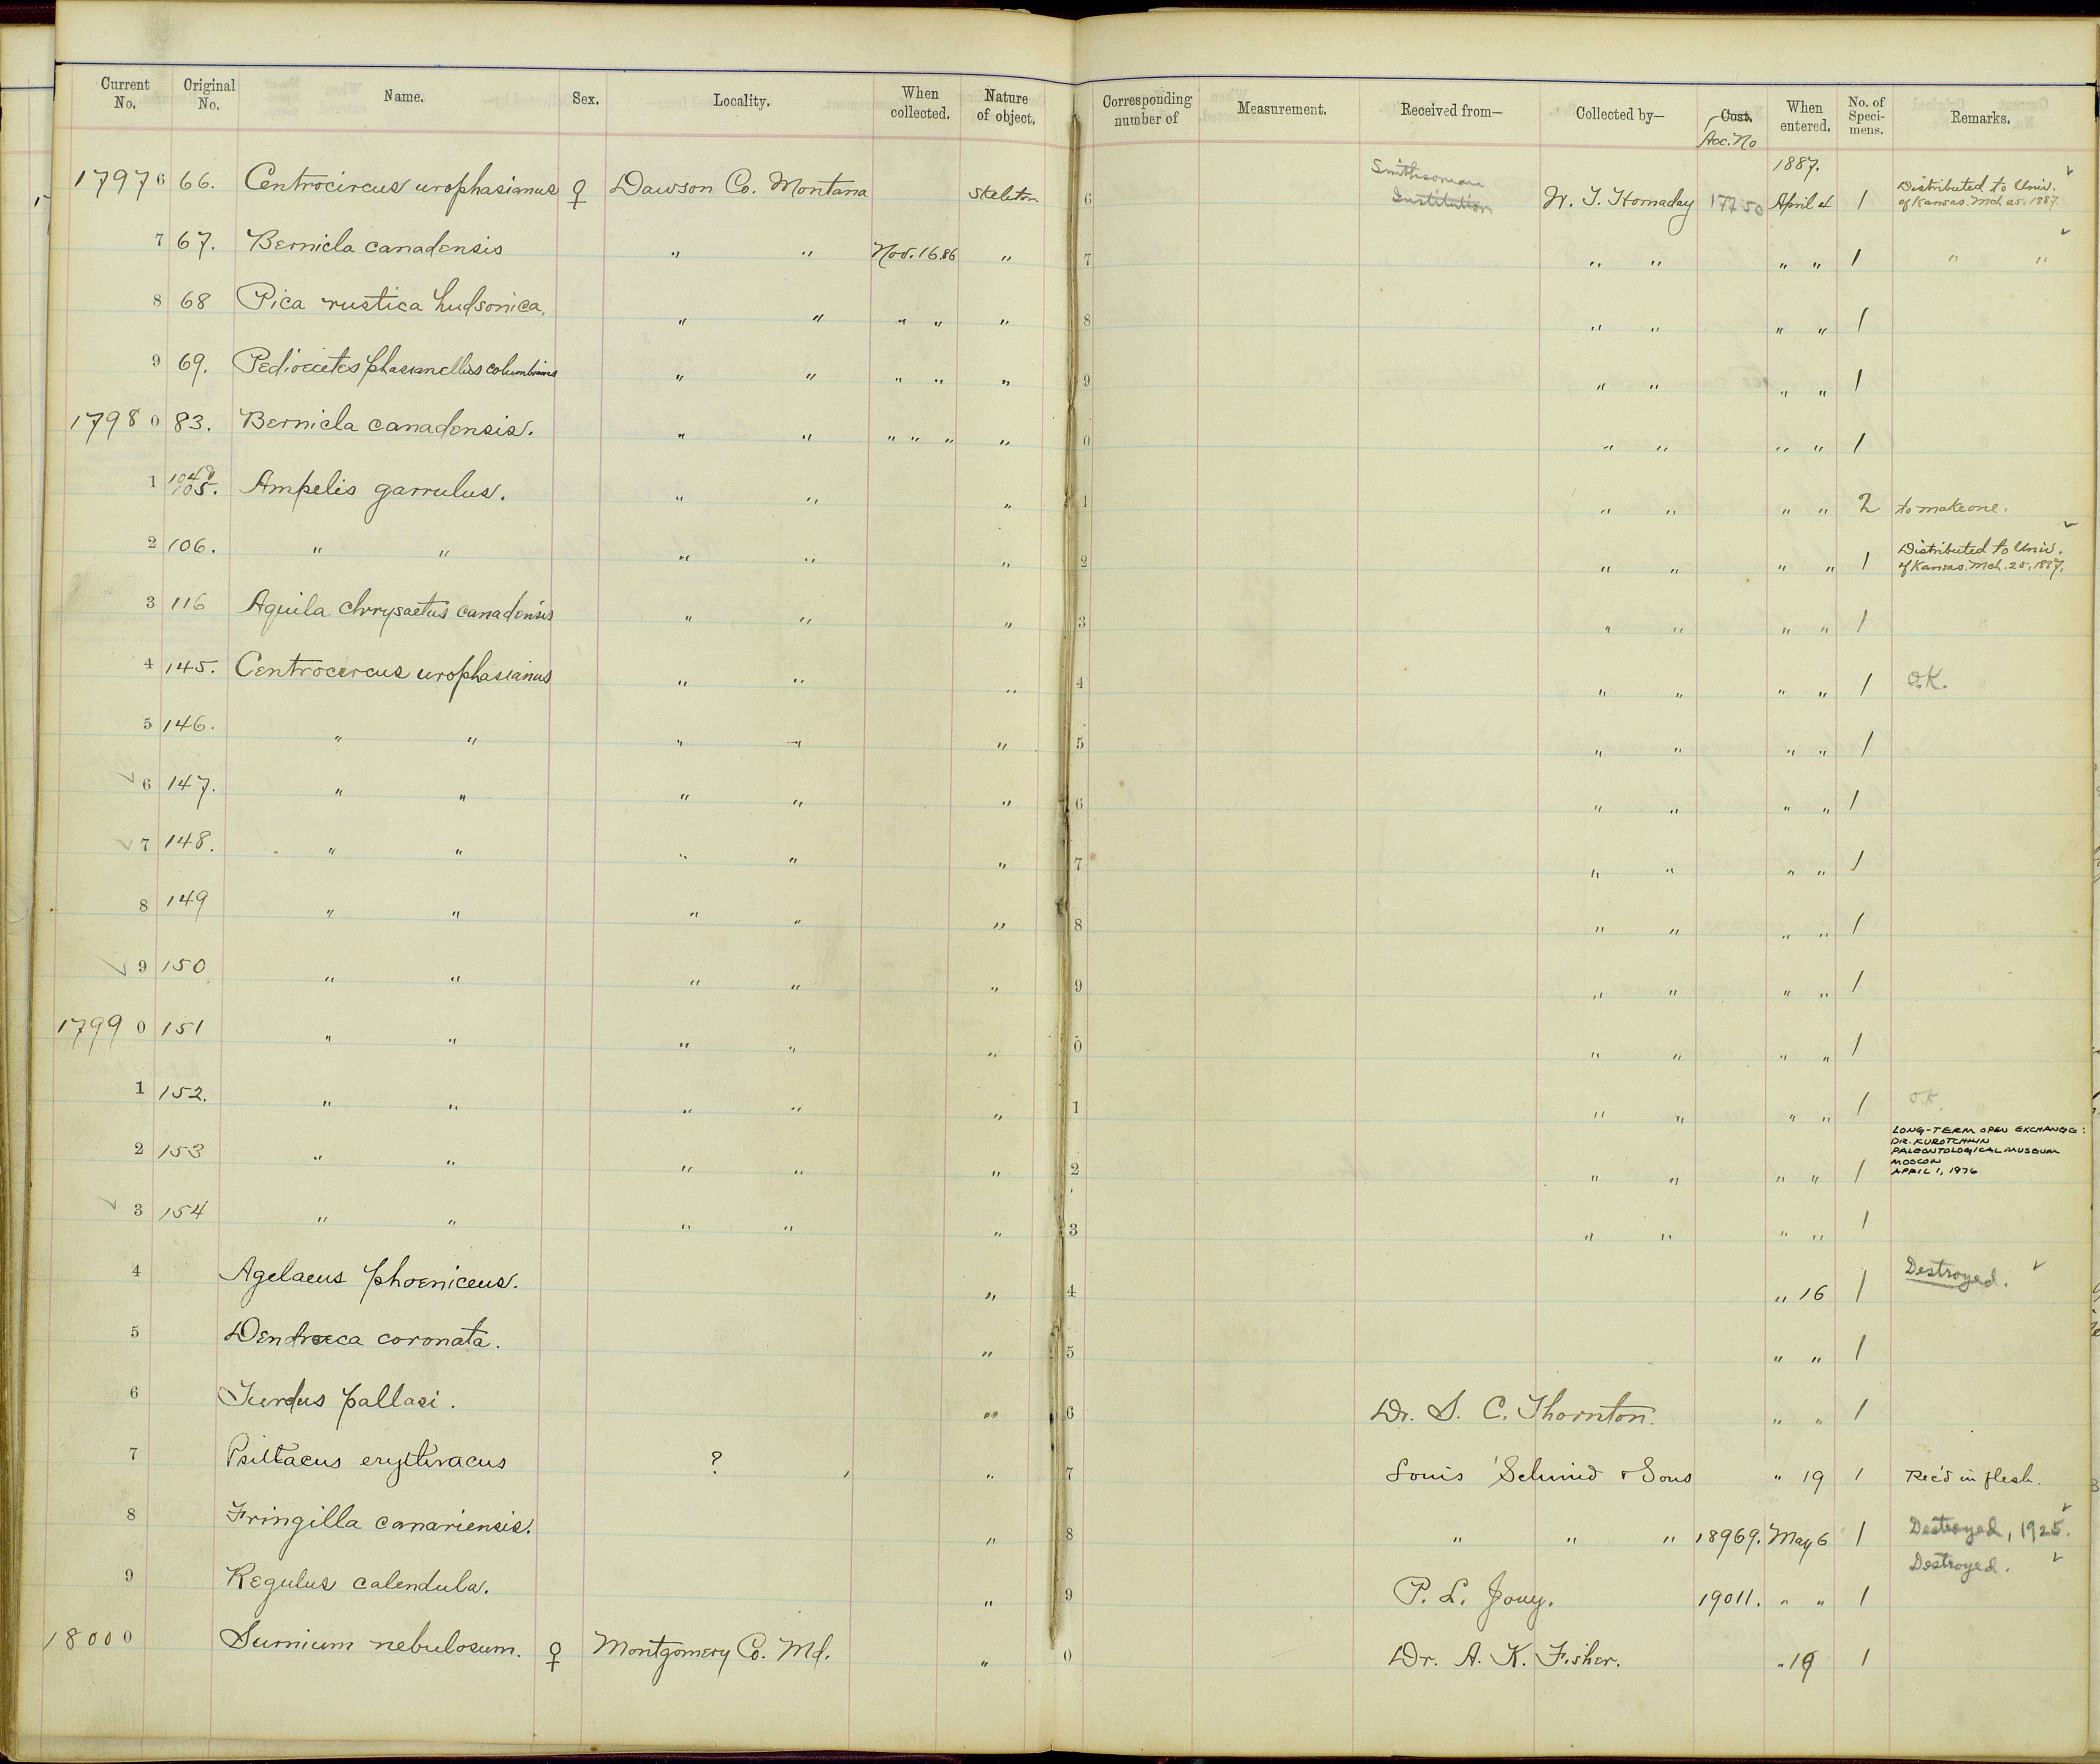 Current No. Original No. Name. Sex. Locality. When collected. Nature of object. Corresponding number of Measurement. Received from— Collected by— Cost. Acc. No When entered. No. of Specimens. Remarks.
1887.
17976 66. Centrocircus urophasianus ♀ Dawson Co. Montana Skeleton 6 Smithsonian Institution W. T. Hornaday 17750 April 4 1 Distributed to Univ. of Kansas. Mch. 25. 1887 ✓
7 67. Bernicla canadensis " " Nov. 16.86 " 7 " " " " 1 " " ✓
8 68 Pica rustica hudsonica. " " " " " 8 " " " " 1
9 69. Pediœcetes phasianellus columbianus " " " " " 9 " " " " 1
17980 83. Bernicla canadensis. " " " " " " 0 " " " " 1
1 104 & 105. Ampelis garrulus. " " " 1 " " " " 2 to make one.
2 106. " " " " " 2 " " " " 1 Distributed to Univ. of Kansas. Mch. 25, 1887. ✓
3 116 Aquila chrysaetus canadensis " " " 3 " " " " 1
4 145. Centrocercus urophasianus " " " 4 " " " " 1 O.K.
5 146. " " " " " 5 " " " " 1
✓ 6 147. " " " " " 6 " " " " 1
✓ 7 148. " " " " " 7 " " " " 1
8 149 " " " " " 8 " " " " 1
✓ 9 150 " " " " " 9 " " " " 1
17990 151 " " " " " 0 " " " " 1
1 152. " " " " " 1 " " " " 1 O.K.
2 153 " " " " " 2 " " " " 1 LONG-TERM OPEN EXCHANGE: DR. KUROTCHKIN PALEONTOLOGICAL MUSEUM MOSCOW APRIL 1, 1976
✓ 3 154 " " " " " 3 " " " " 1
4 Agelaeus phoeniceus. " 4 " 16 1 Destroyed. ✓
5 Dendroeca coronata. " 5 " " 1
6 Turdus pallasi. " 6 Dr. S. C. Thornton. " " 1
7 Psittacus erythracus ? " 7 Louis Schmid & Sons " 19 1 Rec'd in flesh.
8 Fringilla canariensis. " 8 " " " 18969. May 6 1 Destroyed, 1925. ✓
9 Regulus calendula. " 9 P. L. Jouy. 19011. " " 1 Destroyed. ✓
18000 Surnium nebulosum. ♀ Montgomery Co. Md. " 0 Dr. A. K. Fisher. " 19 1